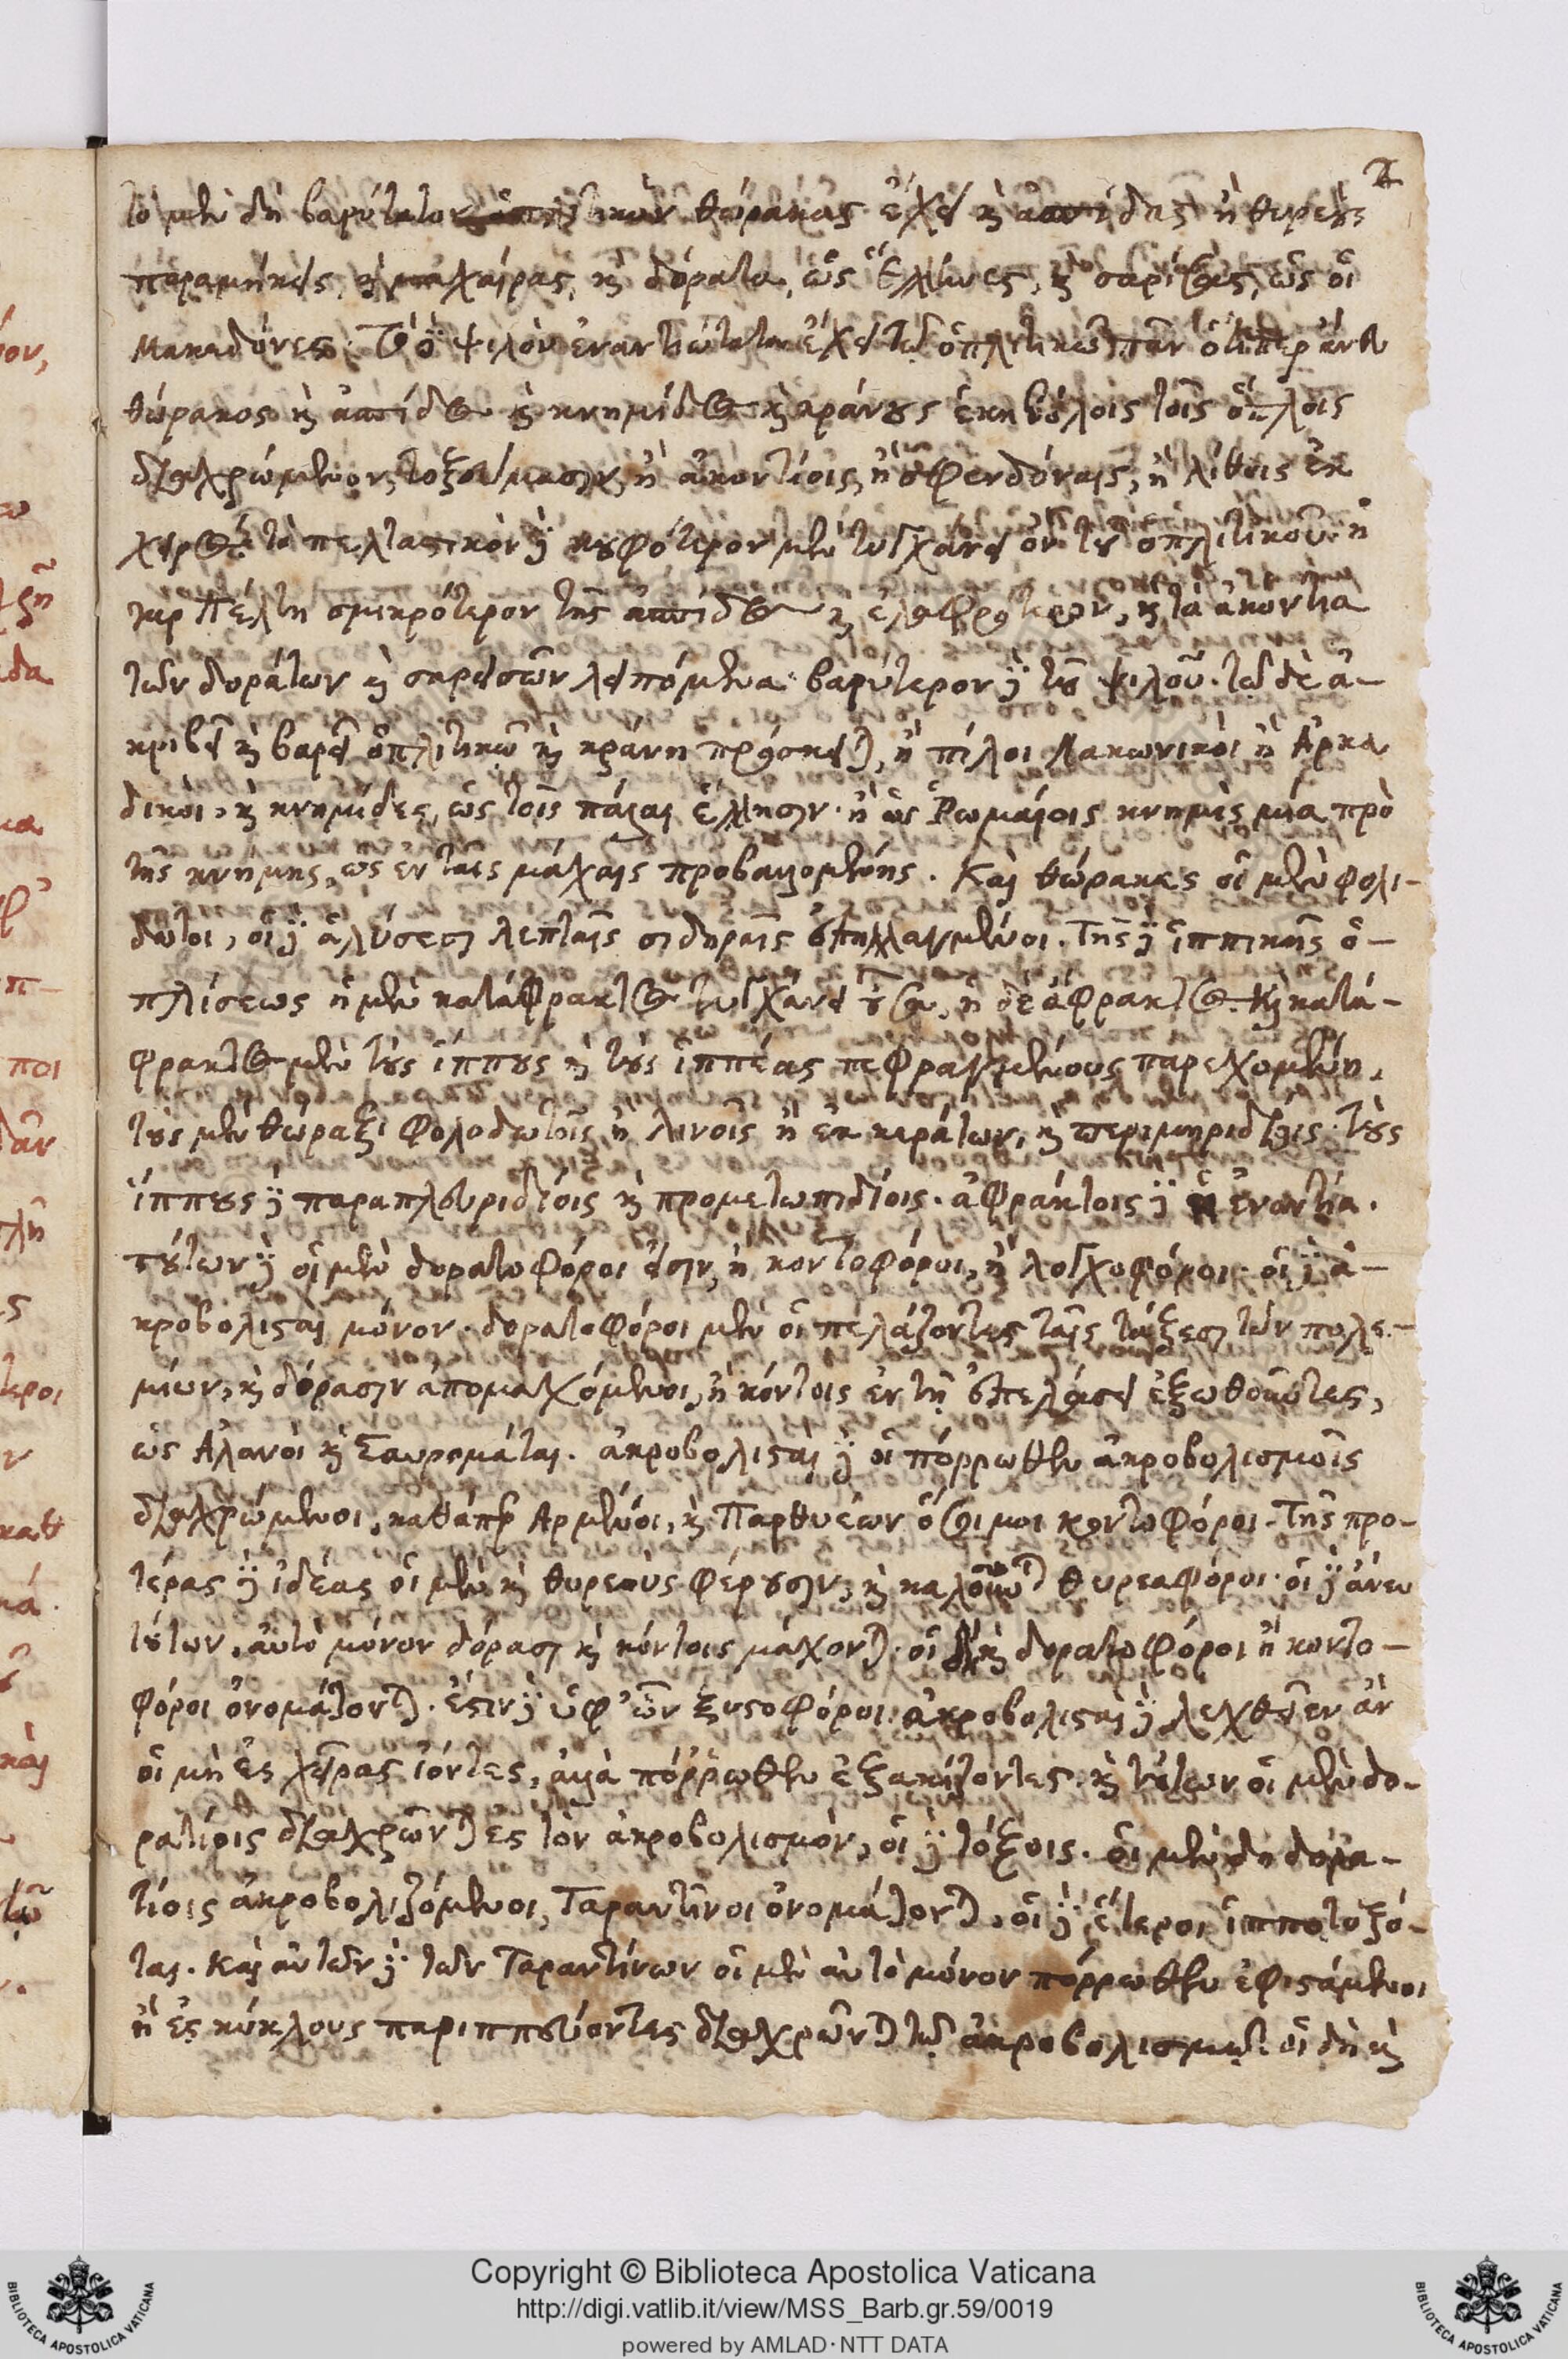 2
τὸ μὲν δὴ βαρύτατον ὁπλιτικὸν θώρακας ἔχει καὶ ἀσπίδας ἢ θυρεοὺς
παραμήκεις, καὶ μαχαίρας, καὶ δόρατα, ὡς Ἕλληνες, καὶ σαρίσας, ὡς οἱ
Μακεδόνες. Τὸ δὲ ψιλὸν ἐναντιώτατα ἔχει τῷ ὁπλιτικῷ πᾶν ὅτιπερ ἄνευ
θώρακος καὶ ἀσπίδος καὶ κνημίδος καὶ κράνους ἑκηβόλοις τοῖς ὅπλοις
διαχρώμενον, τοξεύμασιν, ἢ ἀκοντίοις, ἢ σφενδόναις, ἢ λίθοις ἐκ
χειρός. τὸ πελταστικὸν δὲ κουφότερον μὲν τυγχάνει ὂν τοῦ ὁπλιτικοῦ. ἡ
γὰρ πέλτη σμικρότερον τῆς ἀσπίδος καὶ ἐλαφρότερον, καὶ τὰ ἀκόντια
τῶν δοράτων καὶ σαρεισῶν λειπόμενα. βαρύτερον δὲ τοῦ ψιλοῦ. τῷ δὲ ἀ-
κριβεῖ καὶ βαρεῖ ὁπλιτικῷ καὶ κράνη πρόσκειται, ἢ πίλοι Λακωνικοὶ ἢ Ἀρκα
δικοὶ, καὶ κνημῖδες, ὡς τοῖς πάλαι ἕλλησιν. ἢ ὡς Ῥωμαίοις κνημὶς μία πρὸ
τῆς κνήμης, ὡς ἐν ταῖς μάχαις προβαλλομένης. Καὶ θώρακες οἱ μὲν φολι-
δωτοὶ, οἱ δὲ ἁλύσεσι λεπταῖς σιδηραῖς ἐπηλλαγμένοι. Τῆς δὲ ἱππικῆς ὁ-
πλίσεως ἡ μὲν κατάφρακτος τυγχάνει οὖσα, ἡ δὲ ἄφρακτος. Καὶ κατά-
φρακτος μὲν τοὺς ἵππους καὶ τοὺς ἱππέας πεφραγμένους παρεχομένη,
τοὺς μὲν θώραξι φολοδωτοῖς ἢ λινοῖς ἢ ἐκ κεράτων, καὶ περιμηριδίοις. τοὺς
ἵππους δὲ παραπλευριδίοις καὶ προμετωπιδίοις. ἀφράκτοις δὲ ἐναντία.
τούτων δὲ οἱ μὲν δορατοφόροι εἰσιν, ἢ κοντοφόροι, ἢ λογχοφόροι. οἱ δὲ ἀ-
κροβολισταὶ μόνον. δορατοφόροι μὲν οἱ πελάζοντες ταῖς τάξεσι τῶν πολε-
μίων, καὶ δόρασιν ἀπομαχόμενοι, ἢ κόντοις ἐν τῇ ἐπελάσει ἐξωθοῦντες,
ὡς Ἀλανοὶ καὶ Σαυρομάται. ἀκροβολισταὶ δὲ οἱ πόρρωθεν ἀκροβολισμοῖς
διαχρώμενοι, καθάπερ Ἀρμένιοι, καὶ Παρθυέων ὅσοι μοι κοντοφόροι. Τῆς προ-
τέρας δὲ ἰδέας οἱ μὲν καὶ θυρεοὺς φέρουσιν, καὶ καλοῦνται θυρεαφόροι. οἱ δὲ ἄνευ
τούτων, αὐτὸ μόνον δόρασι καὶ κόντοις μάχονται. οἳ δὴ καὶ δορατοφόροι ἢ κοντο-
φόροι ὀνομάζονται. ἔστιν δὲ ὑφ' ὧν ξυστοφόροι. ἀκροβολισταὶ δὲ λεχθεῖεν ἂν
οἱ μὴ ἐς χεῖρας ἰόντες, ἀλλὰ πόρρωθεν ἐξακοντίζοντες. καὶ τούτων οἱ μὲν δο-
ρατίοις διαχρῶνται ἐς τὸν ἀκροβολισμὸν, οἱ δὲ τόξοις. οἱ μὲν δὴ δορα-
τίοις ἀκροβολιζόμενοι, Ταραντῖνοι ὀνομάζονται, οἱ δὲ ἕτεροι ἱπποτοξό-
ται. Καὶ αὐτῶν δὲ τῶν Ταραντίνων οἱ μὲν αὐτὸ μόνον πόρρωθεν ἐφιστάμενοι
ἢ ἐς κύκλους παριππεύοντες διαχρῶνται τῷ ἀκροβολισμῷ. οἱ δὴ καὶ
Copyright © Biblioteca Apostolica Vaticana
http://digi.vatlib.it/view/MSS_Barb.gr.59/0019
powered by AMLAD·NTT DATA
BIBLIOTECA APOSTOLICA VATICANA
BIBLIOTECA APOSTOLICA VATICANA